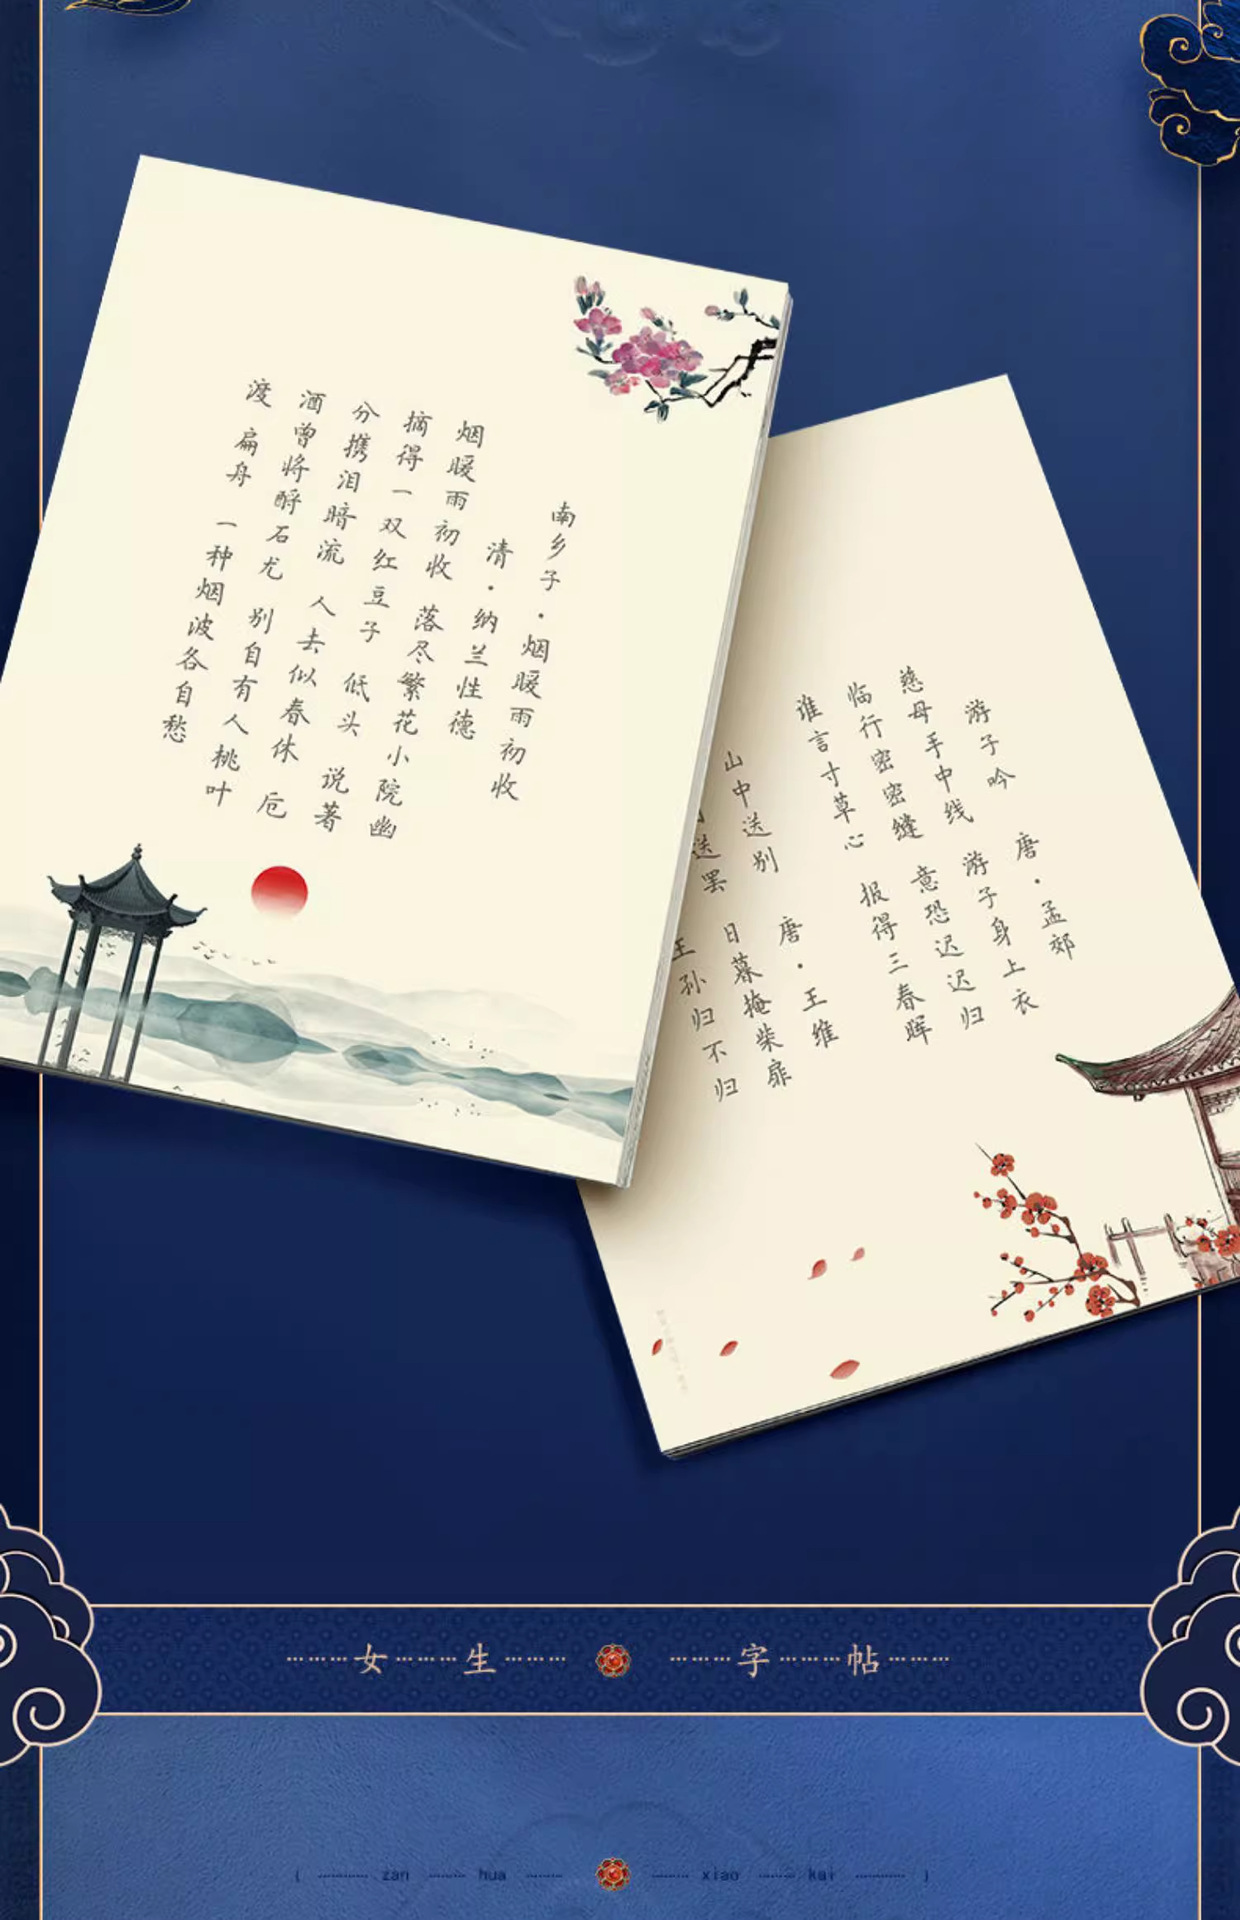 南乡子·烟暖雨初收
清·纳兰性德
烟暖雨初收 落尽繁花小院幽
摘得一双红豆子 低头 说著
分携泪暗流 人去似春休 卮
酒曾将酹石尤 别自有人桃叶
渡 扁舟 一种烟波各自愁
游子吟 唐·孟郊
慈母手中线 游子身上衣
临行密密缝 意恐迟迟归
谁言寸草心 报得三春晖
山中送别 唐·王维
送罢 日暮掩柴扉
王孙归不归
女生 字帖
zan hua xiao kai